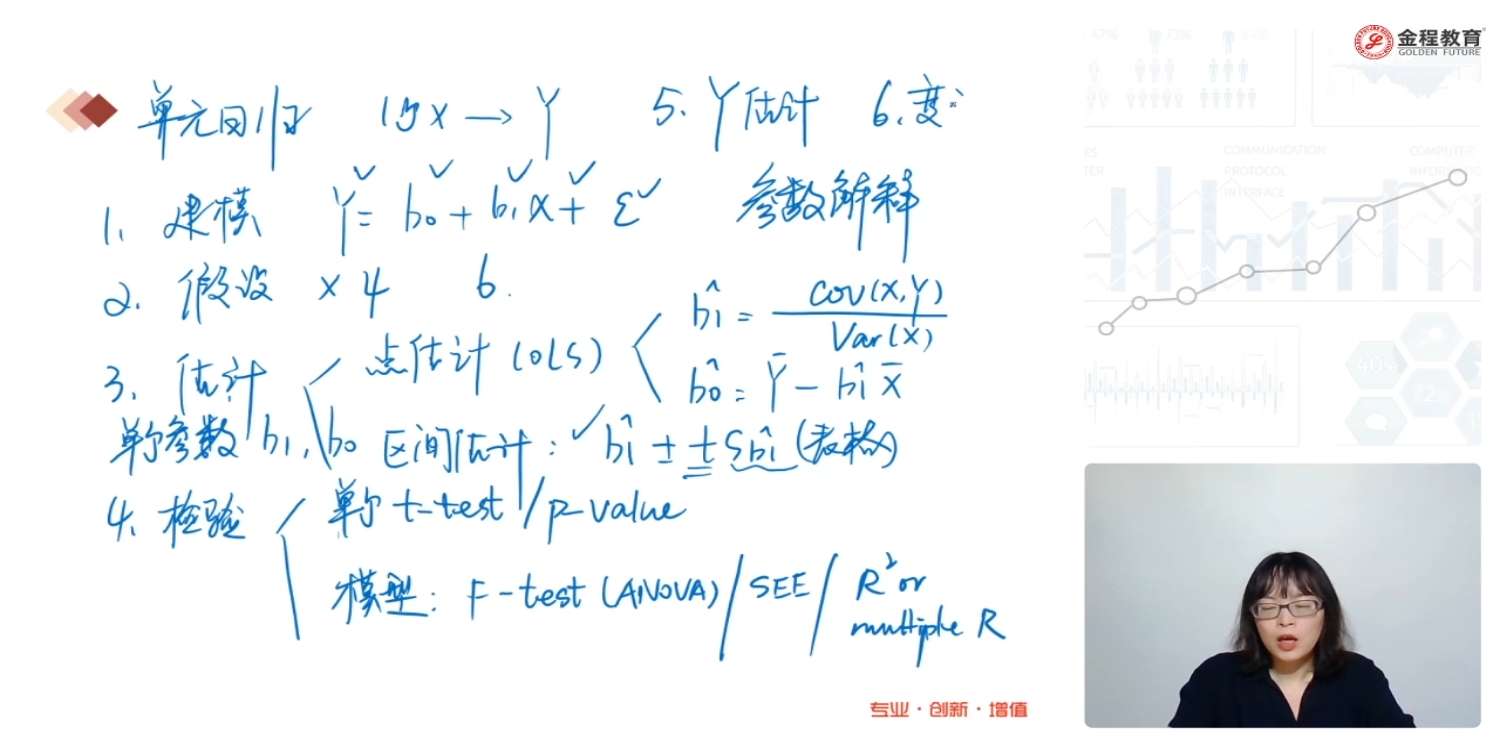 金程教育
GOLDEN FUTURE
单元回归 1个X → Y 5. Y估计 6. 变
1. 建模 Y = b0 + b1X + ε 参数解释
2. 假设 ×4 6.
3. 估计 点估计 (OLS) b̂1 = Cov(X,Y) / Var(X)
b̂0 = Ȳ − b̂1 X̄
单个参数 b1, b0 区间估计: b̂1 ± t Sb̂1 (表格)
4. 检验 单个 t-test / p-value
模型: F-test (ANOVA) / SEE / R² or
multiple R
专业·创新·增值
COMMUNICATION
PROTOCOL
INTERFACE